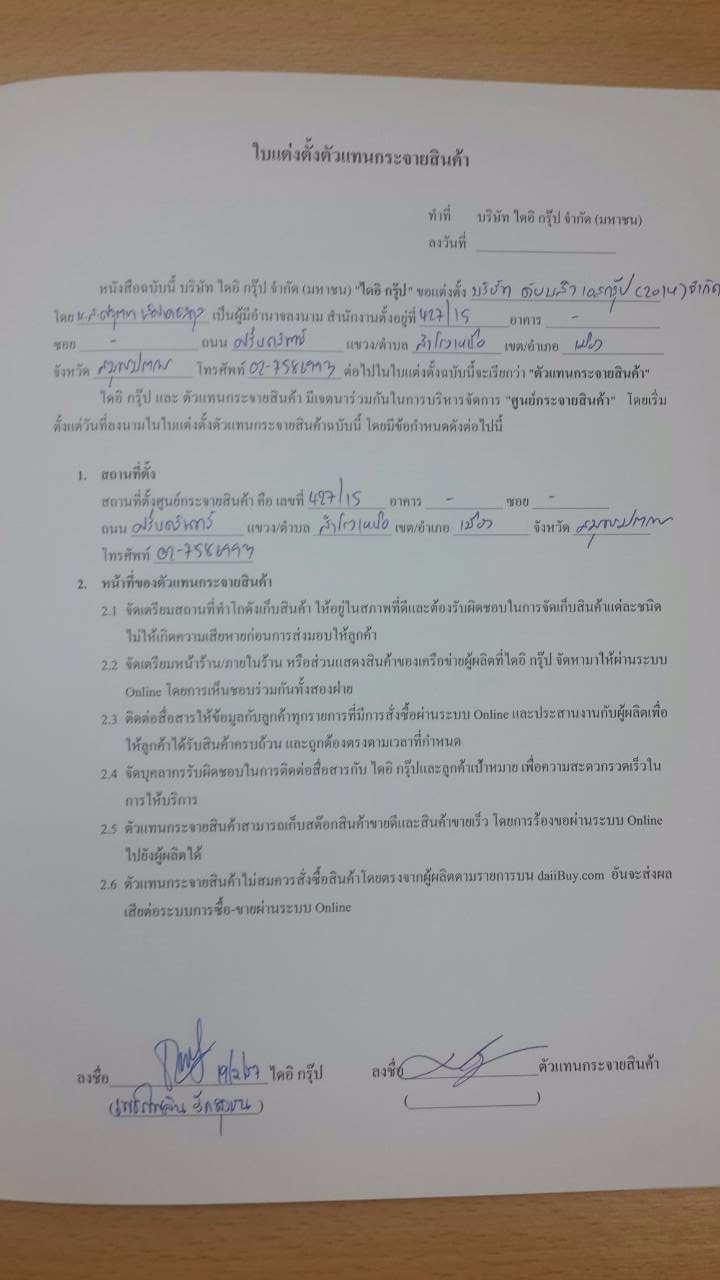 ใบแต่งตั้งตัวแทนกระจายสินค้า
ทำที่ บริษัท ไดอิ กรุ๊ป จำกัด (มหาชน)
ลงวันที่
หนังสือฉบับนี้ บริษัท ไดอิ กรุ๊ป จำกัด (มหาชน) "ไดอิ กรุ๊ป" ขอแต่งตั้ง บริษัท (2014) จำกัด
โดย น.ส. เป็นผู้มีอำนาจลงนาม สำนักงานตั้งอยู่ที่ 427/15 อาคาร -
ซอย - ถนน ศรีนครินทร์ แขวง/ตำบล สำโรงเหนือ เขต/อำเภอ เมือง
จังหวัด สมุทรปราการ โทรศัพท์ 02-7586993 ต่อไปในใบแต่งตั้งฉบับนี้จะเรียกว่า "ตัวแทนกระจายสินค้า"
ไดอิ กรุ๊ป และ ตัวแทนกระจายสินค้า มีเจตนาร่วมกันในการบริหารจัดการ "ศูนย์กระจายสินค้า" โดยเริ่ม
ตั้งแต่วันที่ลงนามในใบแต่งตั้งตัวแทนกระจายสินค้าฉบับนี้ โดยมีข้อกำหนดดังต่อไปนี้
1. สถานที่ตั้ง
สถานที่ตั้งศูนย์กระจายสินค้า คือ เลขที่ 427/15 อาคาร - ซอย -
ถนน ศรีนครินทร์ แขวง/ตำบล สำโรงเหนือ เขต/อำเภอ เมือง จังหวัด สมุทรปราการ
โทรศัพท์ 02-7586993
2. หน้าที่ของตัวแทนกระจายสินค้า
2.1 จัดเตรียมสถานที่ทำโกดังเก็บสินค้า ให้อยู่ในสภาพที่ดีและต้องรับผิดชอบในการจัดเก็บสินค้าแต่ละชนิด
ไม่ให้เกิดความเสียหายก่อนการส่งมอบให้ลูกค้า
2.2 จัดเตรียมหน้าร้าน/ภายในร้าน หรือส่วนแสดงสินค้าของเครือข่ายผู้ผลิตที่ไดอิ กรุ๊ป จัดหามาให้ผ่านระบบ
Online โดยการเห็นชอบร่วมกันทั้งสองฝ่าย
2.3 ติดต่อสื่อสารให้ข้อมูลกับลูกค้าทุกรายการที่มีการสั่งซื้อผ่านระบบ Online และประสานงานกับผู้ผลิตเพื่อ
ให้ลูกค้าได้รับสินค้าครบถ้วน และถูกต้องตรงตามเวลาที่กำหนด
2.4 จัดบุคลากรรับผิดชอบในการติดต่อสื่อสารกับ ไดอิ กรุ๊ปและลูกค้าเป้าหมาย เพื่อความสะดวกรวดเร็วใน
การให้บริการ
2.5 ตัวแทนกระจายสินค้าสามารถเก็บสต๊อกสินค้าขายดีและสินค้าขายเร็ว โดยการร้องขอผ่านระบบ Online
ไปยังผู้ผลิตได้
2.6 ตัวแทนกระจายสินค้าไม่สมควรสั่งซื้อสินค้าโดยตรงจากผู้ผลิตตามรายการบน daiiBuy.com อันจะส่งผล
เสียต่อระบบการซื้อ-ขายผ่านระบบ Online
ลงชื่อ 19/2/67 ไดอิ กรุ๊ป ลงชื่อ ตัวแทนกระจายสินค้า